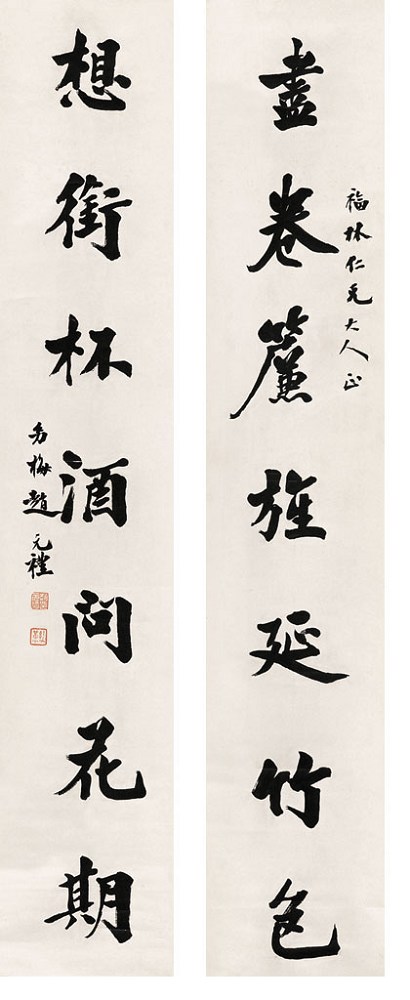 福林仁兄大人正
盡卷簾旌延竹色
想銜杯酒問花期
幼梅趙元禮